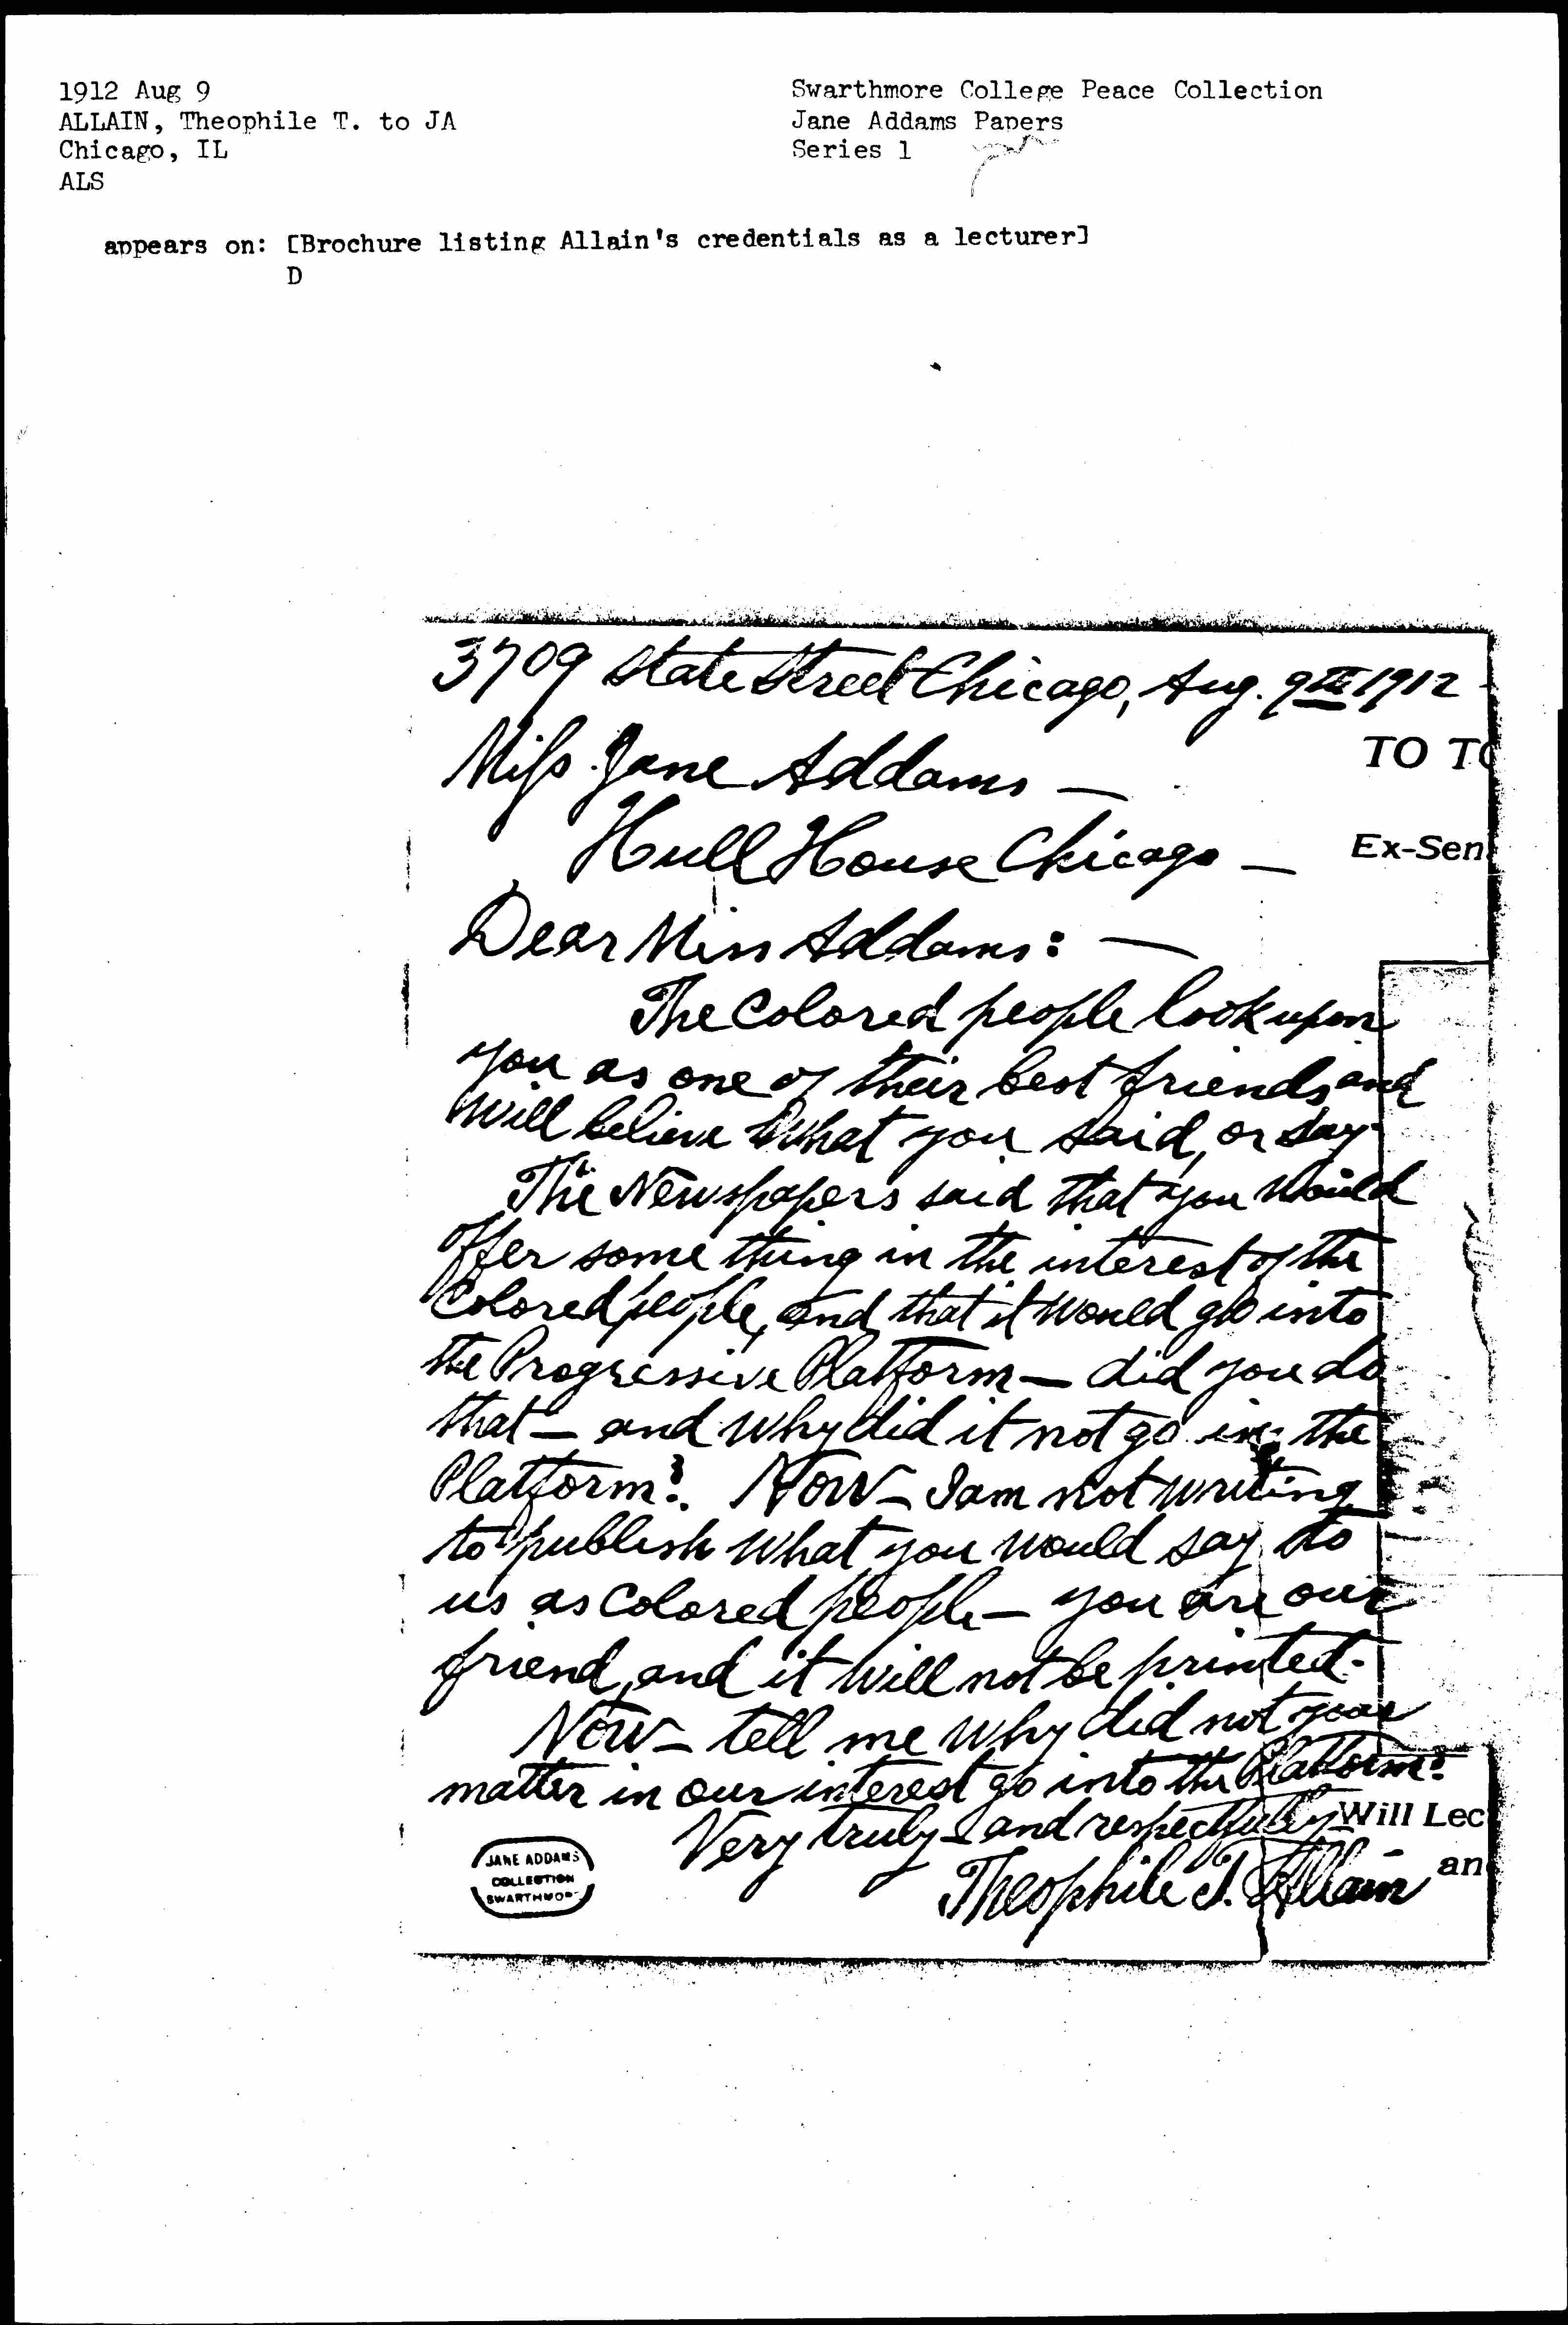 1912 Aug 9
ALLAIN, Theophile T. to JA
Chicago, IL
ALS
Swarthmore College Peace Collection
Jane Addams Papers
Series 1
appears on: [Brochure listing Allain's credentials as a lecturer]
D
3709 State Street Chicago, Aug. 9th 1912
Miss Jane Addams —
TO TO
Hull House Chicago —
Ex-Sen
Dear Miss Addams: —
The Colored people look upon
you as one of their best friends and
Will believe What you said, or say
The Newspapers said that you Would
offer some thing in the interest of the
Colored people, and that it Would go into
the Progressive Platform — did you do
that — and why did it not go in the
Platform? Now — I am not writing
to publish what you would say to
us as Colored people — you are our
friend, and it will not be printed.
Now — tell me why did not your
matter in our interest go into the Platform?
Very truly and respectfully
Will Lec
Theophile T. Allain
an
JANE ADDAMS
COLLECTION
SWARTHMORE